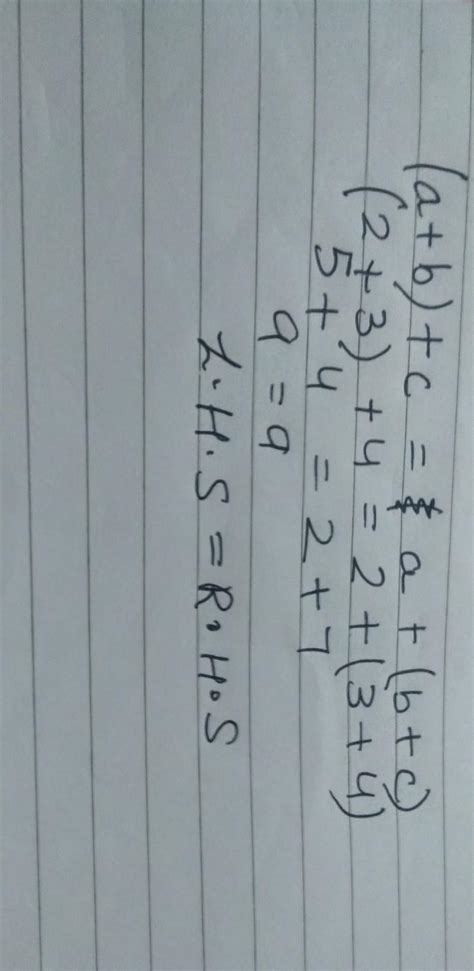 (a+b)+c = a + (b+c)
(2+3)+4 = 2+(3+4)
5+4 = 2+7
9 = 9
L.H.S = R.H.S